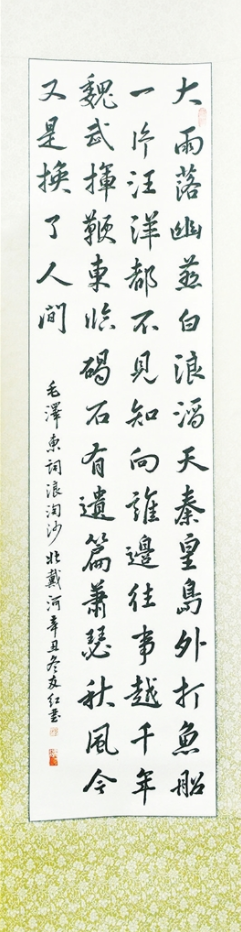 大雨落幽燕白浪滔天秦皇島外打魚船
一片汪洋都不見知向誰邊往事越千年
魏武揮鞭東临碣石有遺篇萧瑟秋風今
又是换了人间
毛澤東詞浪淘沙北戴河辛丑冬友红书